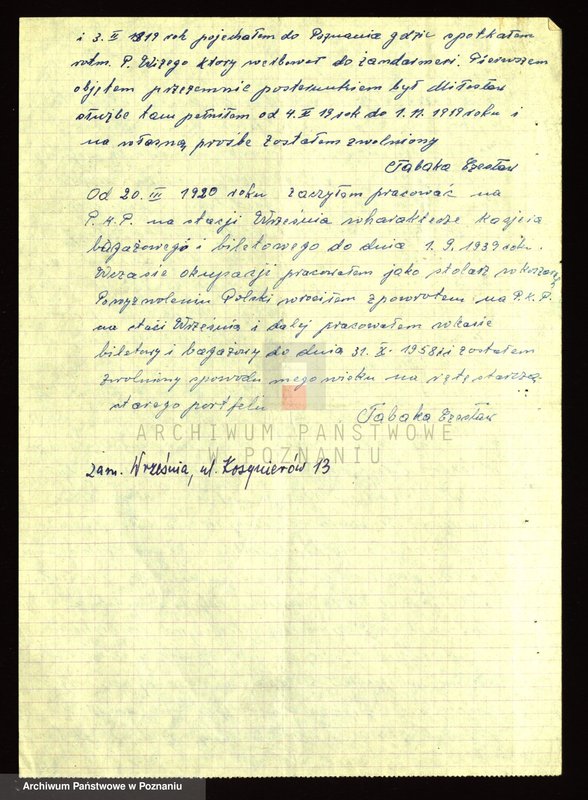 i 3. II 1919 rok pojechałem do Poznania gdzie spotkałem
rotm. P. Wizego ktory werbował do żandarmeri. Pierwszem
objętem przezemnie posterunkiem był Miłosław
służbe tam pełniłem od 4. II 19 rok do 1. 11. 1919 roku i
na własną prośbe zostałem zwolniony
Tabaka Czesław
Od 20. III 1920 roku zaczyłem pracować na
P.K.P. na stacji Września wharakterze kasjera
bagażowego i biletowego do dnia 1. 9. 1939 roku.
Wczasie okupacji pracowałem jako stolarz wkoszarach
Powyzwoleniu Polski wrociłem zpowrotem na P.K.P.
na staći Września i dalej pracowałem wkasie
biletowy i bagażowy do dnia 31. X 1958 i zostałem
zwolniony spowodu mego wieku na rętę starczą
starego portfelu
Tabaka Czesław
ARCHIWUM PAŃSTWOWE
W POZNANIU
zam. Września, ul. Kosynierów 13
Archiwum Państwowe w Poznaniu